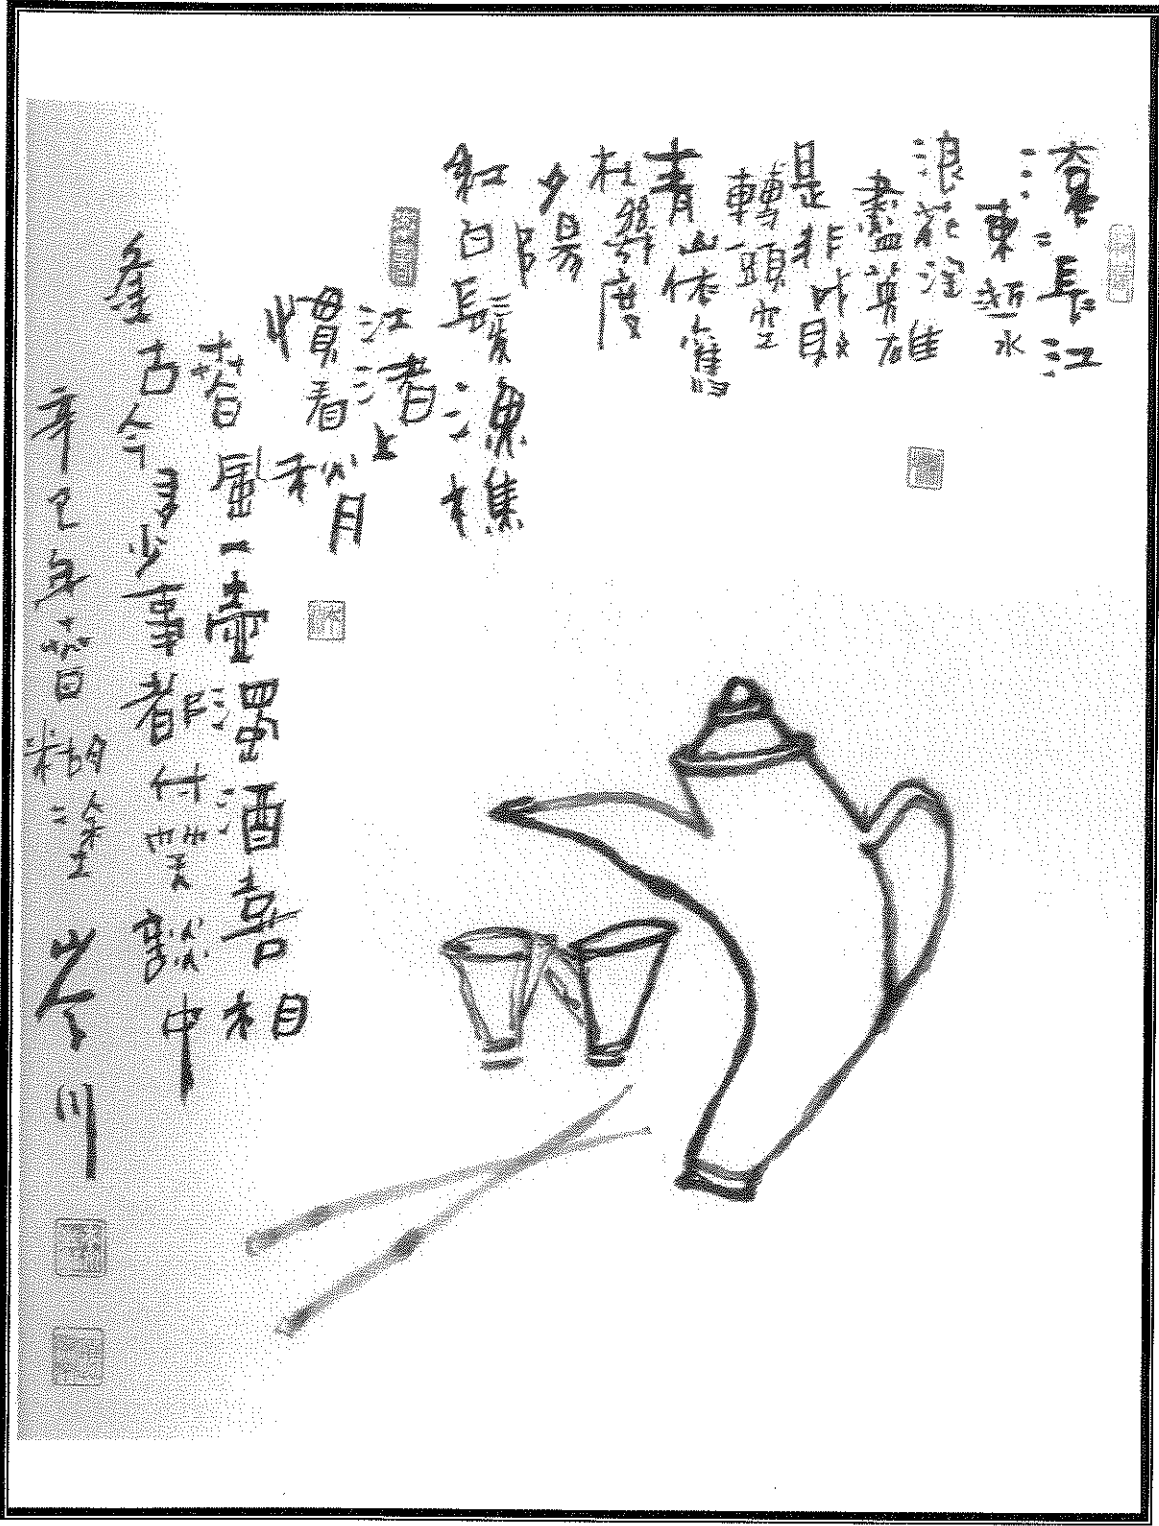 滾長江
東逝水
浪花淘
盡英雄
是非成敗
轉頭空
青山依舊
在幾度
夕陽
紅白髮漁樵
江渚上
慣看秋月
春風一壺濁酒喜相
逢古今多少事都付笑談中
辛巳年春糊塗川